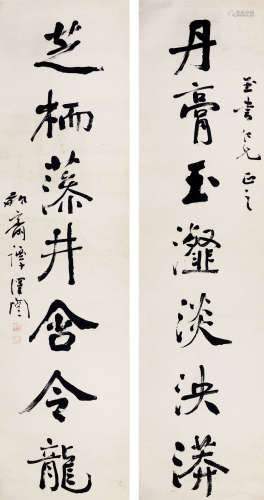 玉書仁兄正之
丹膏玉瀣淡泱漭
芝栭藻井含令龍
瓶齋譚澤闓